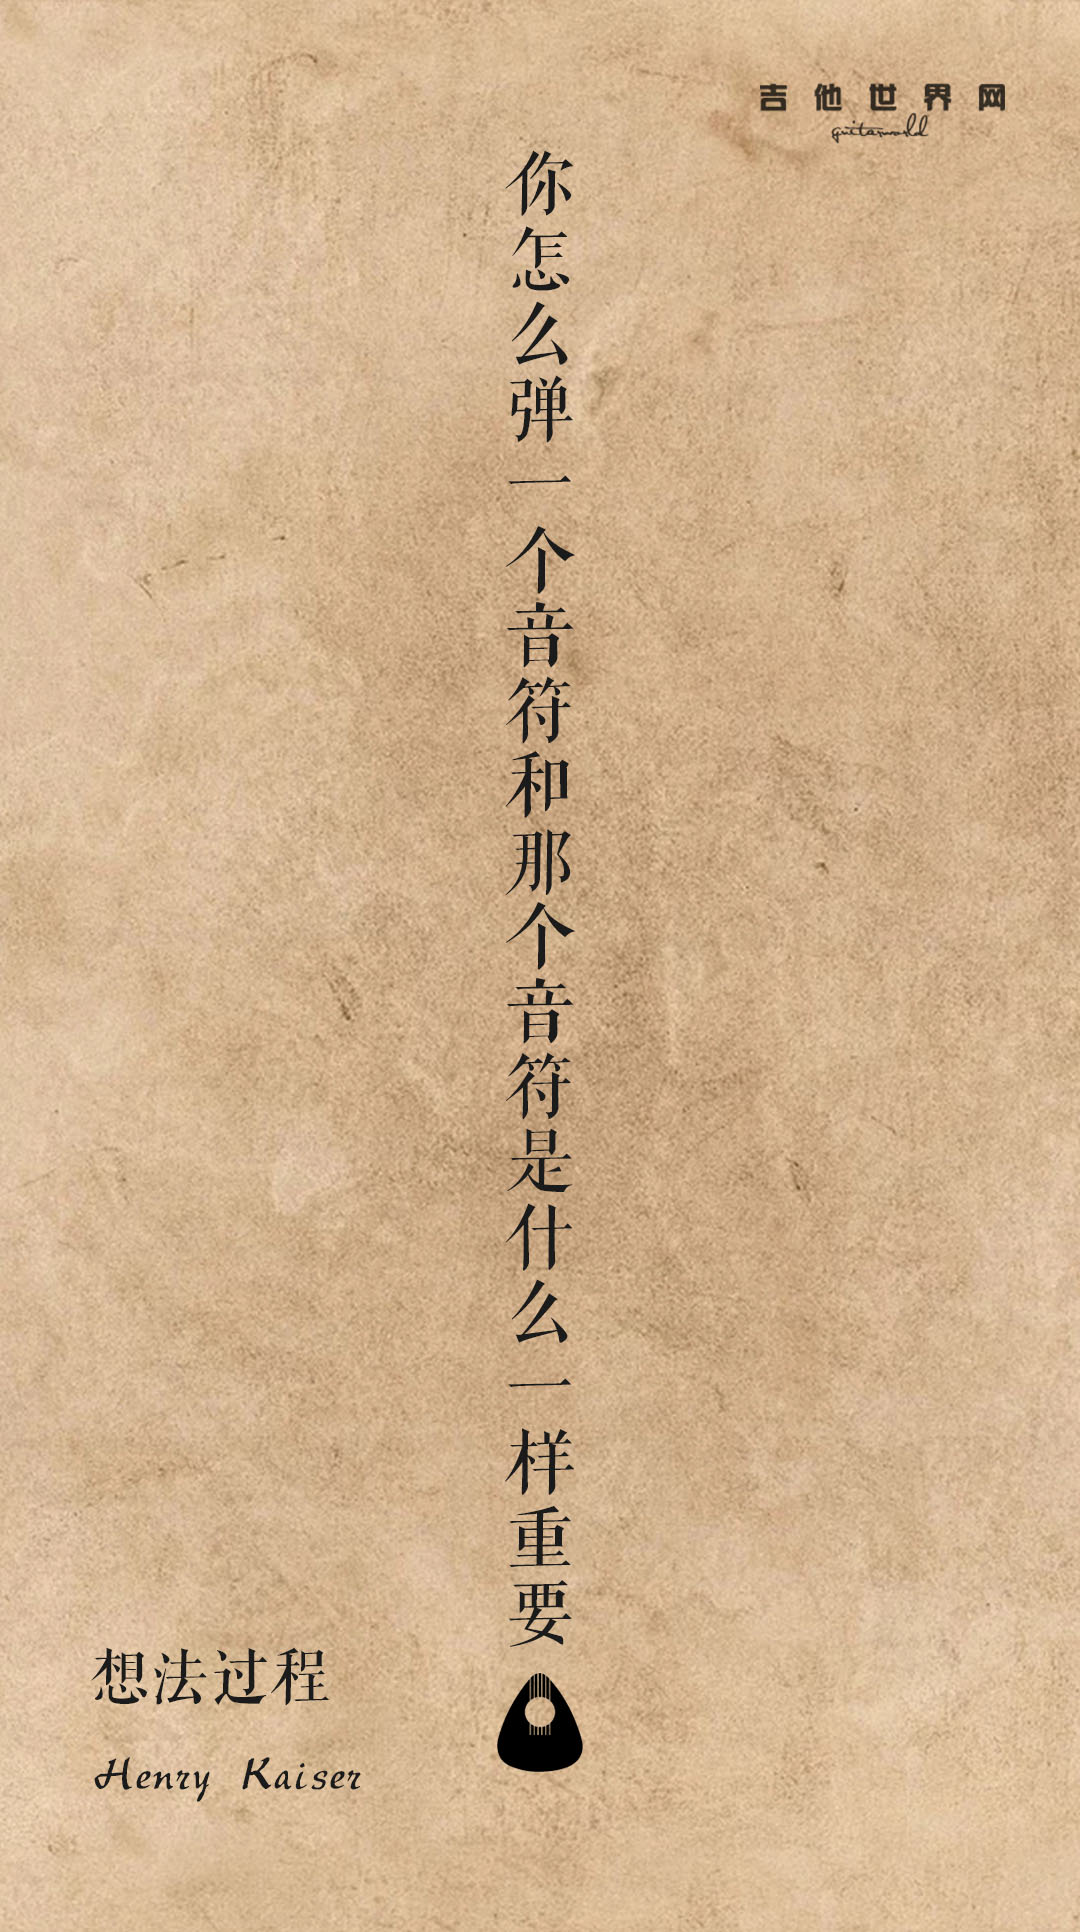 吉他世界网
guitarworld
你怎么弹一个音符和那个音符是什么一样重要
想法过程
Henry Kaiser